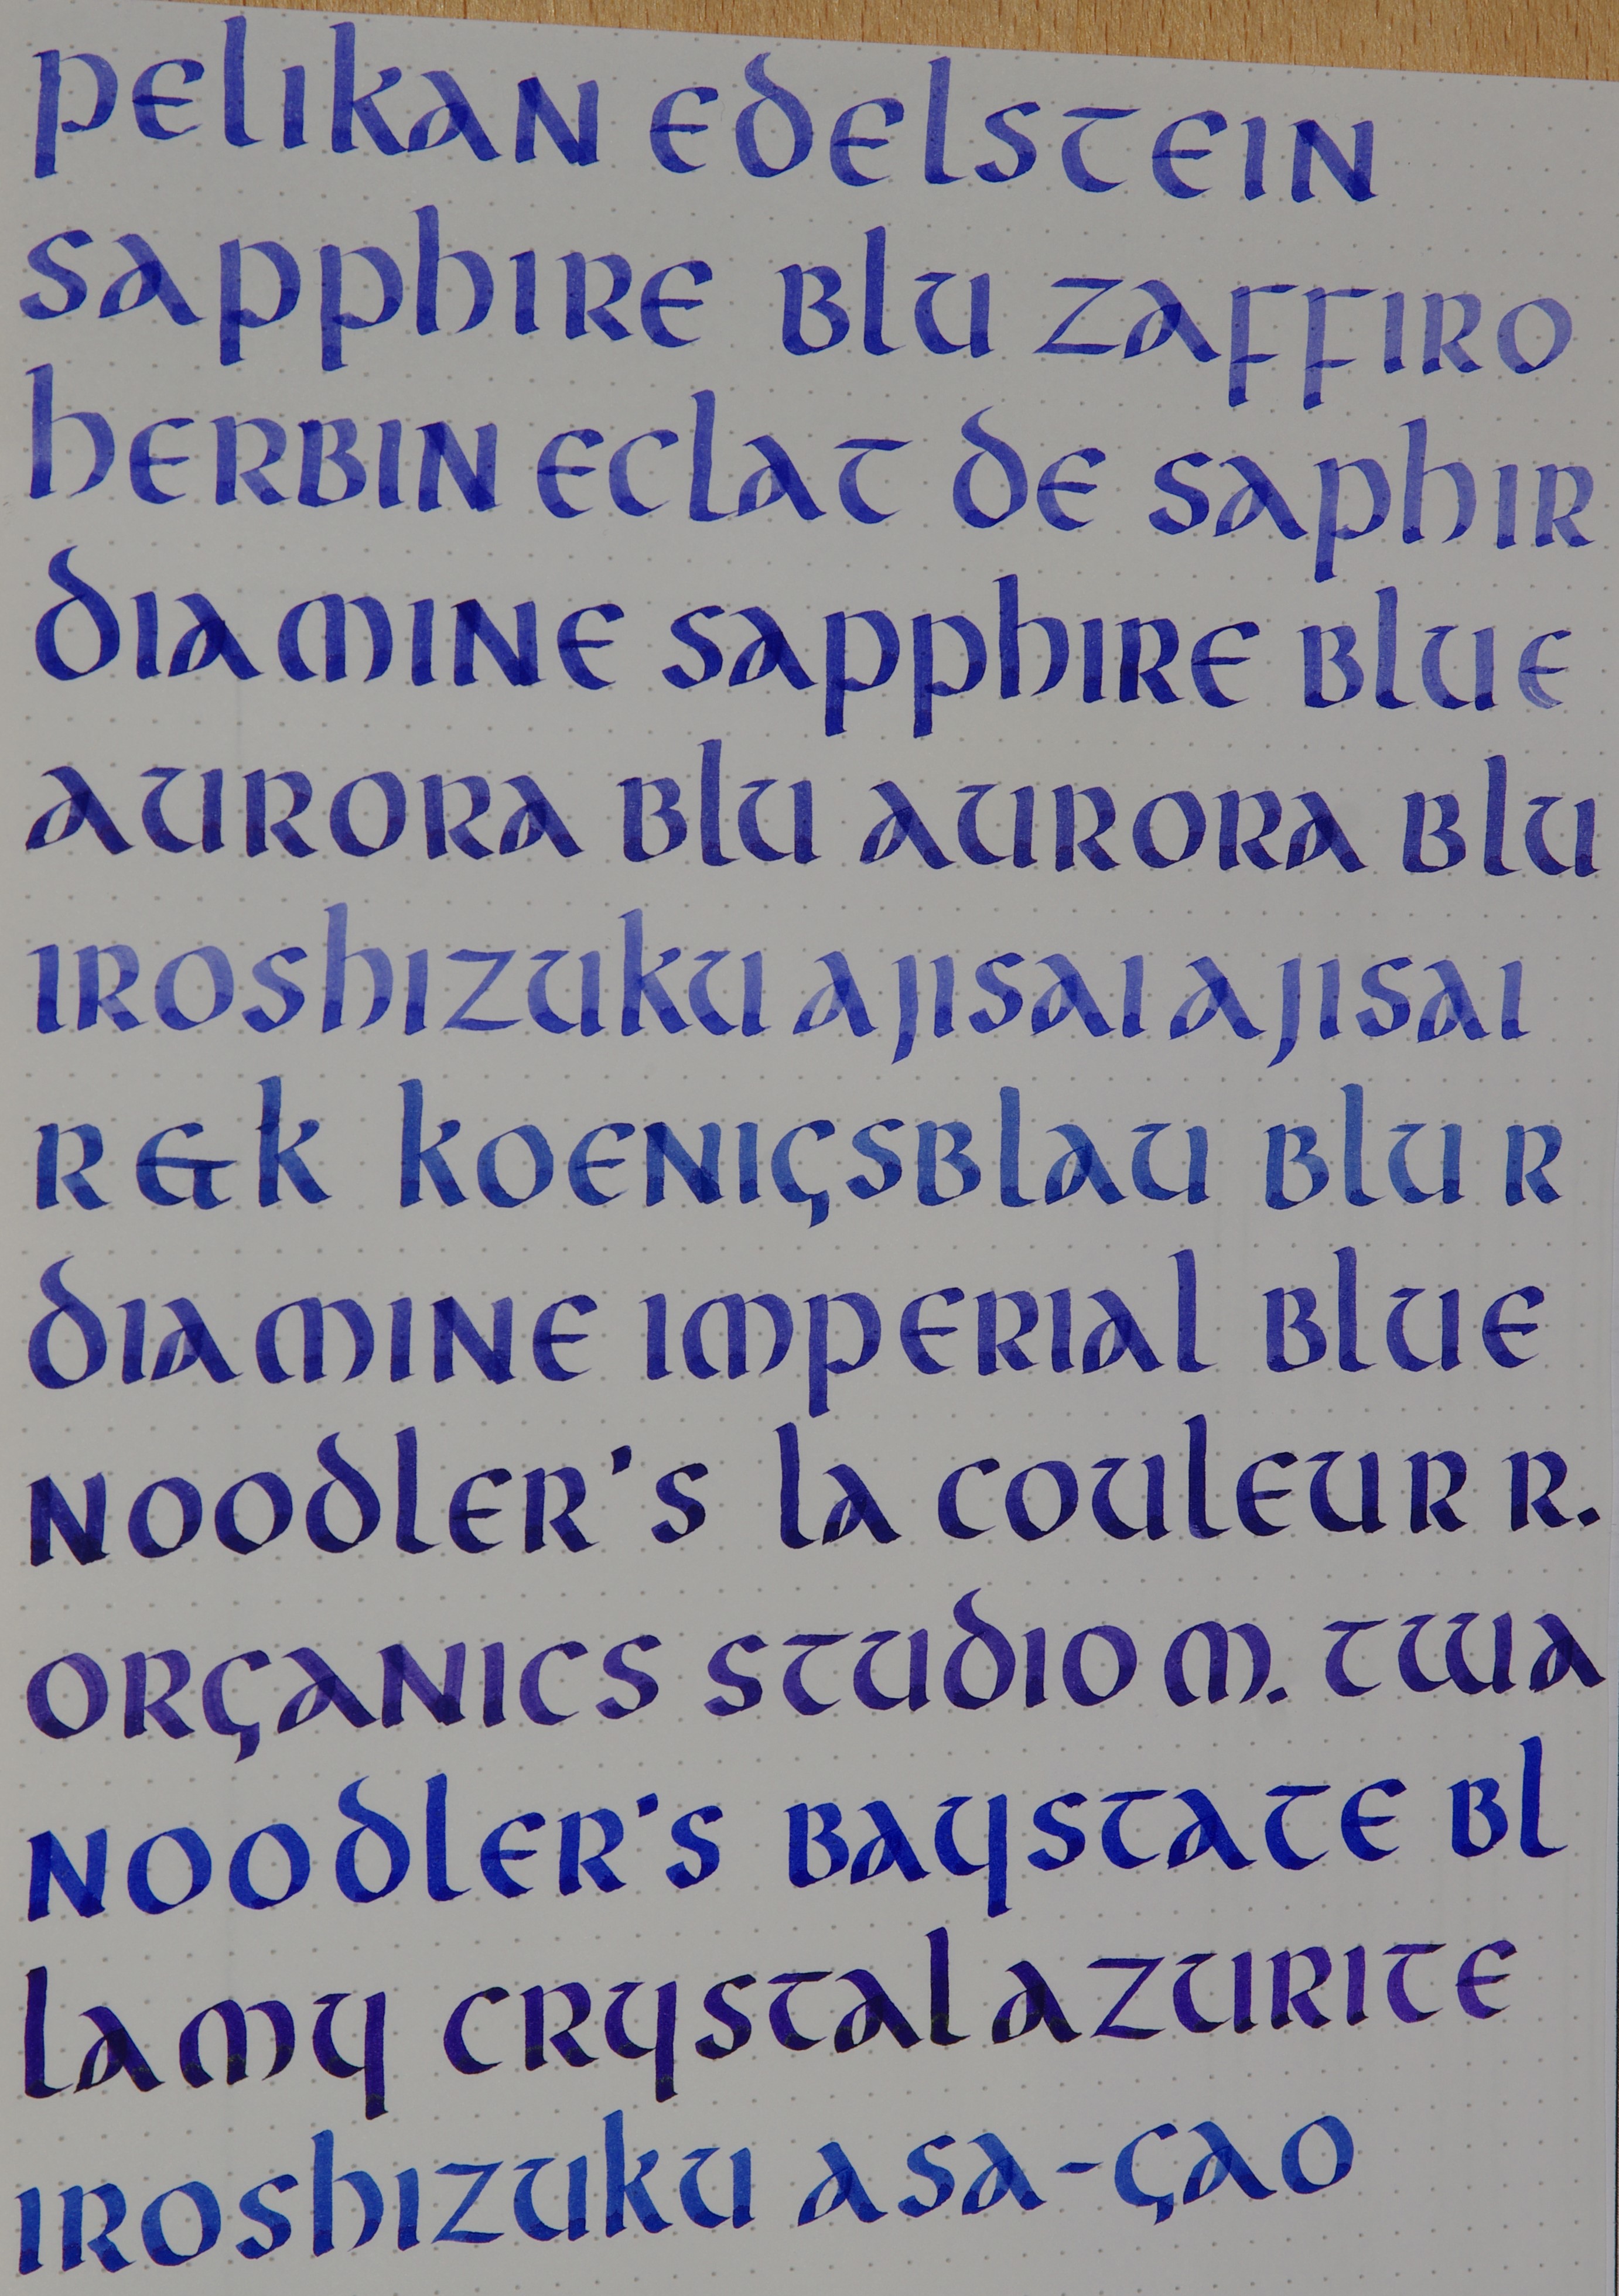 PELIKAN EDELSTEIN
SAPPHIRE BLU ZAFFIRO
HERBIN ECLAT DE SAPHIR
DIAMINE SAPPHIRE BLUE
AURORA BLU AURORA BLU
IROSHIZUKU AJISAI AJISAI
R&K KOENIGSBLAU BLU R
DIAMINE IMPERIAL BLUE
NOODLER'S LA COULEUR R.
ORGANICS STUDIO M. TWA
NOODLER'S BAYSTATE BL
LAMY CRYSTAL AZURITE
IROSHIZUKU ASA-GAO